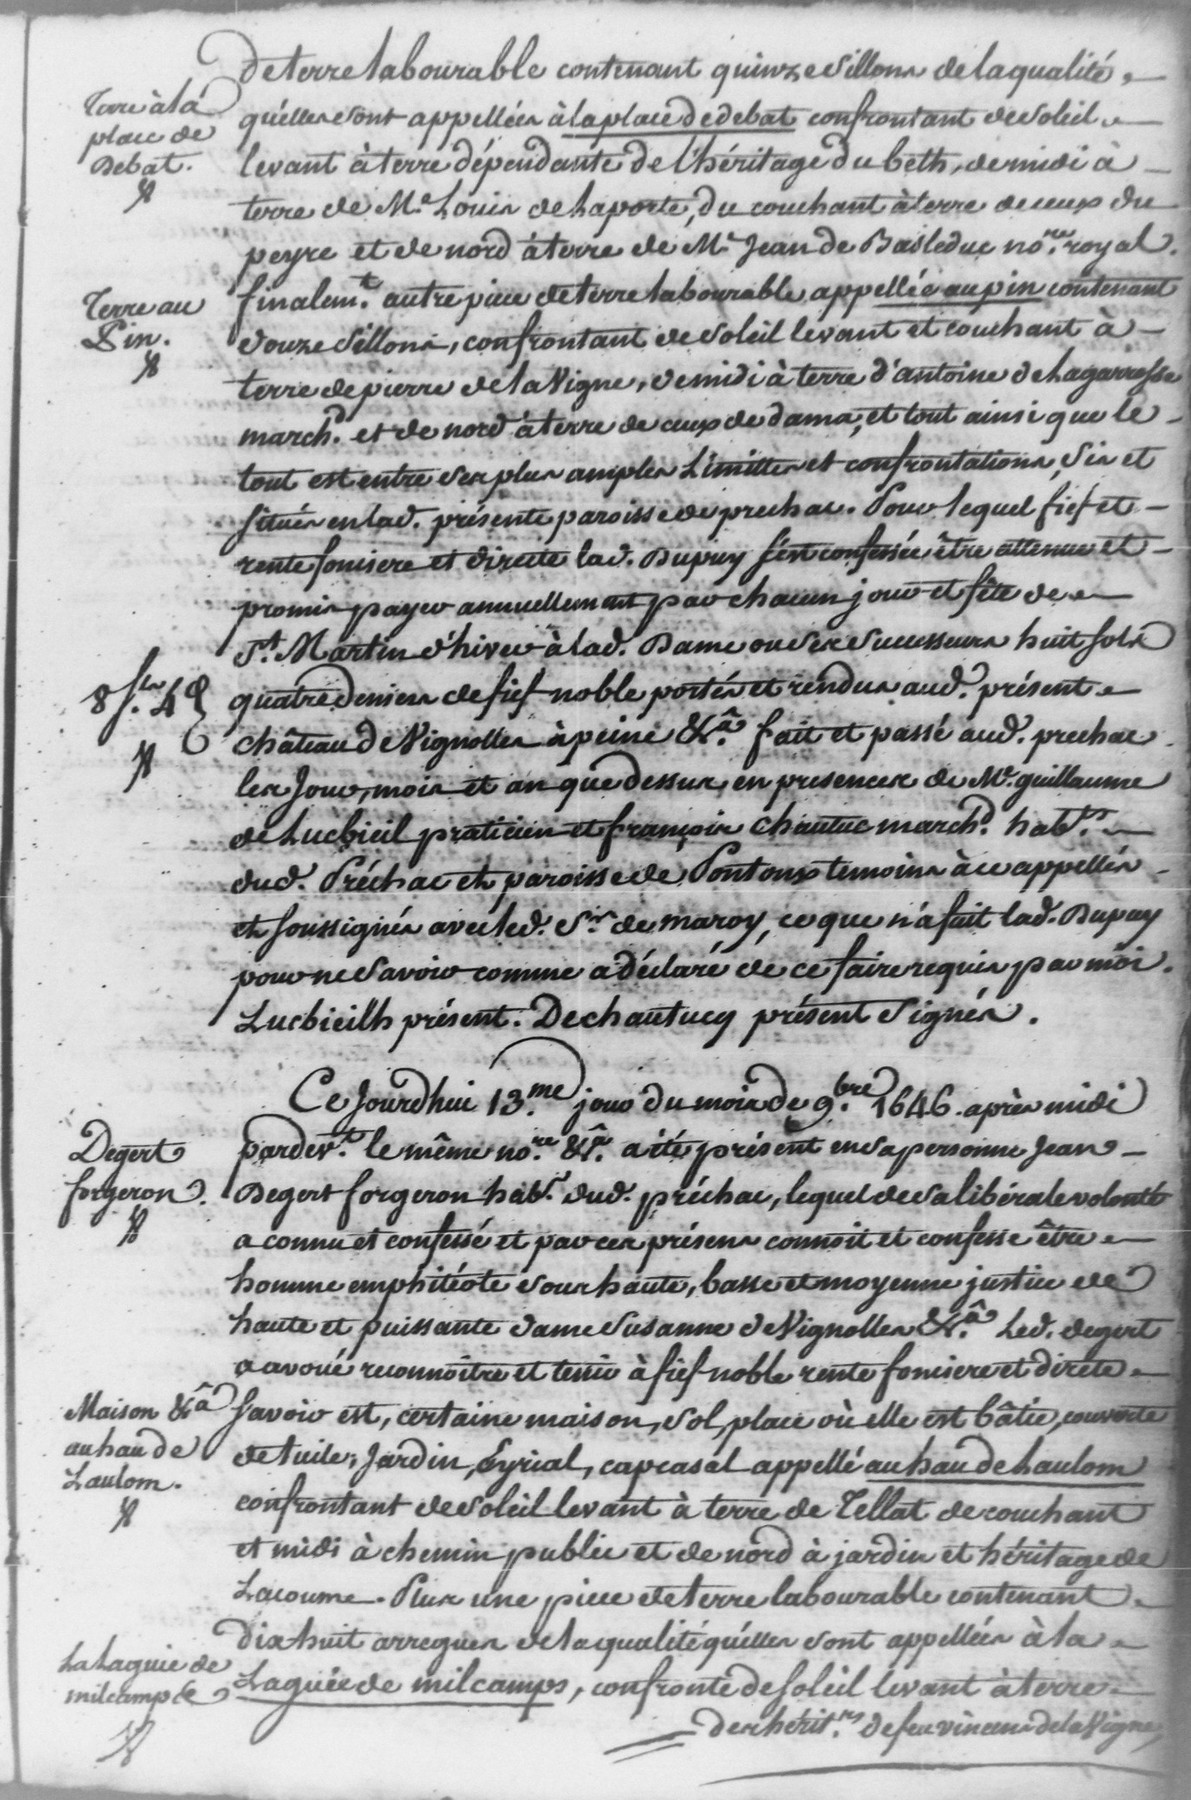 de terre labourable contenant quinze sillons de la qualité
Terre à la
place de
Debat.
qu'elles sont appellées à la place de debat confrontant de soleil
levant à terre dépendante de l'héritage du beth, de midi à
terre de Me. Louis de Laporte, du couchant à terre de ceux du
peyre et de nord à terre de Me. Jean de Basleduc nore. royal.
Terre au
Pin.
finalemt. autre piece de terre labourable appellée au pin contenant
douze sillons, confrontant de soleil levant et couchant à
terre de pierre de la Vigne, de midi à terre d'antoine de Lagarresse
marchd. et de nord à terre de ceux de dama, et tout ainsi que le
tout est entre ses plus amples Limittes et confrontations, sis et
situés en lad. présente paroisse de prechac. Pour lequel fief et
rente fonsiere et directe lad. Dupuy s'est confessée être attenue et
promis payer annuellement par chacun jour et fête de
St. Martin d'hiver à lad. Dame ou ses successeurs huit sols
8 sls. 4 d
quatre deniers de fief noble portés et rendus aud. présent
château de Vignolles à peine &a. fait et passé aud. prechac
les Jour, mois et an que dessus, en presences de Me. guillaume
de Lucbieil praticien et françois chautuc marchd. habts.
dud. Préchac et paroisse de Pontoux temoins à ce appellés
et soussignés avec led. Sr. de maroy, ce que n'a fait lad. Dupuy
pour ne savoir comme a déclaré de ce faire requis par moi.
Lucbieilh présent. Dechautucq présent Signés.
Ce Jourdhui 13.me jour du mois de 9.bre 1646. après midi
Degert
forgeron.
pardevt. le même nore. &a. a été présent en sa personne Jean
Degert forgeron habt. dud. préchac, lequel de sa libérale volonté
a connu et confessé et par ces présens connoit et confesse être
homme emphitéote sour haute, basse et moyenne justice de
haute et puissante dame Susanne de Vignolles &a. Led. degert
a avoué reconnoître et tenir à fief noble rente fonsiere et directe
Maison &a
au hau de
Laulom.
Savoir est, certaine maison, sol, place où elle est bâtie, couverte
de tuile, Jardin, Eyrial, capcasal appellé au hau de Laulom
confrontant de soleil levant à terre de Tellat de couchant
et midi à chemin public et de nord à jardin et héritage de
Lacoume. Plus une piece de terre labourable contenant
dix huit arregues de la qualité qu'elles sont appellées à la
La Laguie de
milcamps &
Laguée de milcamps, confronte de soleil levant à terre
des hérit.rs de feu vincens de la Vigne,